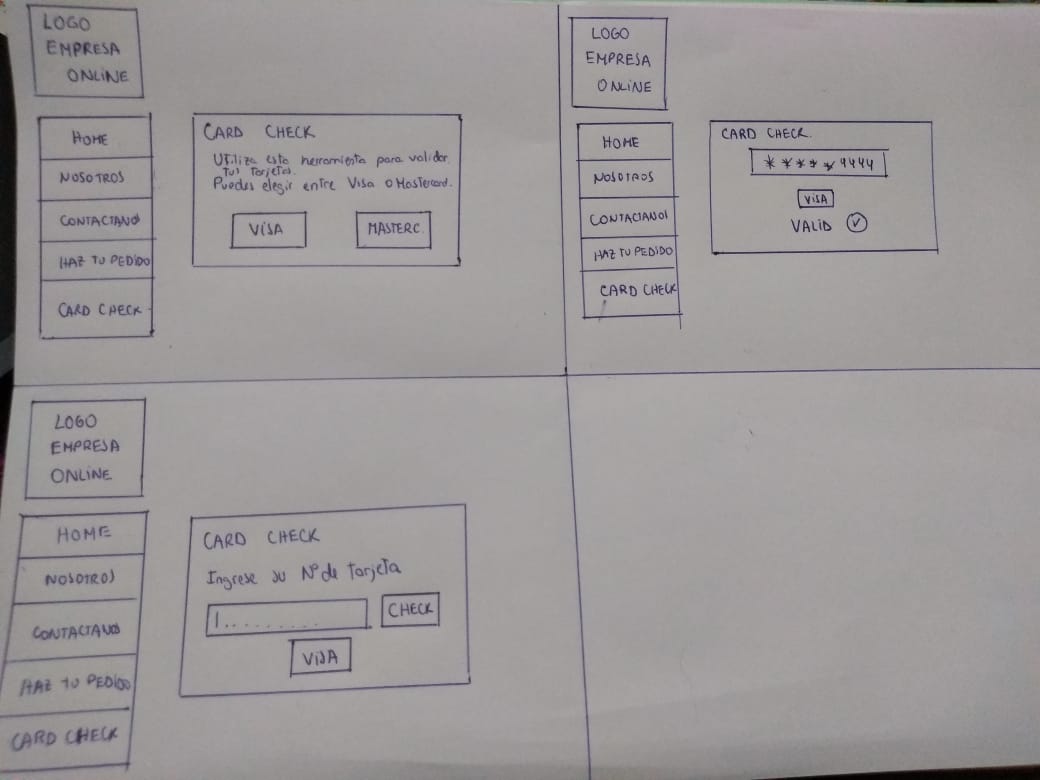 LOGO
EMPRESA
ONLINE
HOME
NOSOTROS
CONTACTANOS
HAZ TU PEDIDO
CARD CHECK
CARD CHECK
Utiliza esta herramienta para validar
tus tarjetas.
Puedes elegir entre Visa o Mastercard.
VISA
MASTERC.
LOGO
EMPRESA
ONLINE
HOME
NOSOTROS
CONTACTANOS
HAZ TU PEDIDO
CARD CHECK
CARD CHECK.
*****4444
VISA
VALID
LOGO
EMPRESA
ONLINE
HOME
NOSOTROS
CONTACTANOS
HAZ TU PEDIDO
CARD CHECK
CARD CHECK
Ingrese su Nº de tarjeta
|.........
CHECK
VISA